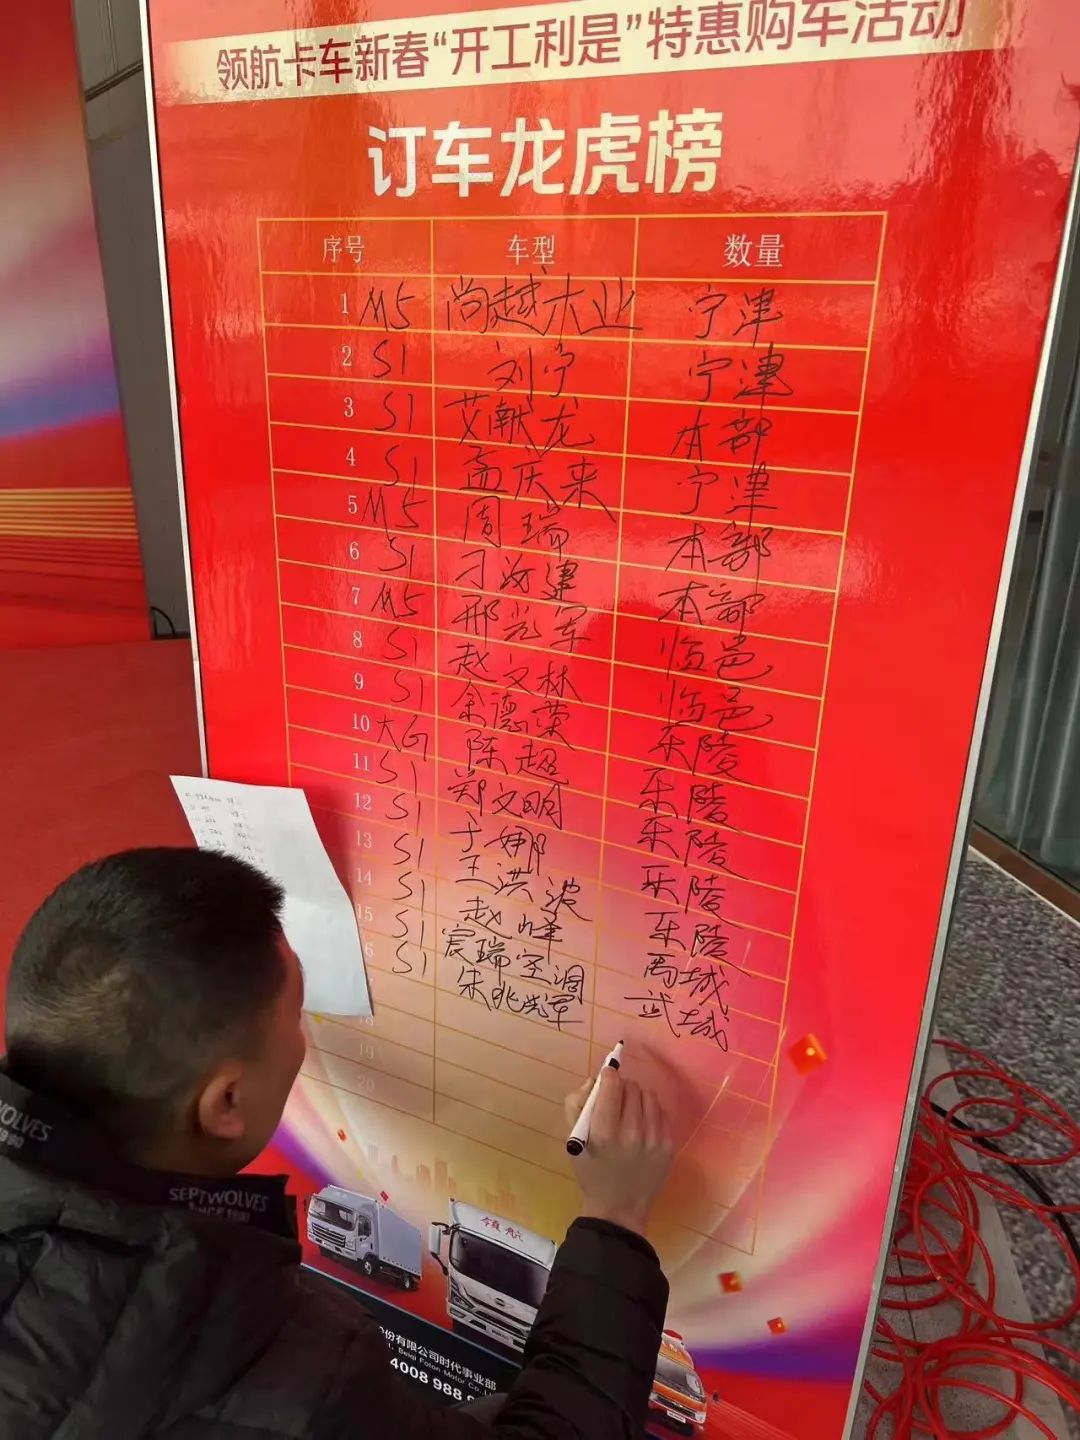 领航卡车新春“开工利是”特惠购车活动
订车龙虎榜
序号 车型 数量
1 M5 尚越木业 宁津
2 S1 刘宁 宁津
3 S1 艾献龙 本部
4 S1 孟庆来 宁津
5 M5 周瑞 本部
6 S1 刁 建 本部
7 M5 邢光军 临邑
8 S1 赵文林 临邑
9 S1 德荣 乐陵
10 大G 陈超 乐陵
11 S1 郑文明 乐陵
12 S1 于娜 乐陵
13 S1 王洪波 乐陵
14 S1 赵峰 禹城
15 S1 宸瑞空调 武城
6 S1 朱兆军
18
19
20
领航
SEPTWOLVES
SINCE 1990
WOLVES
1990
份有限公司时代事业部
Beiqi Foton Motor Co.,L
4008 988